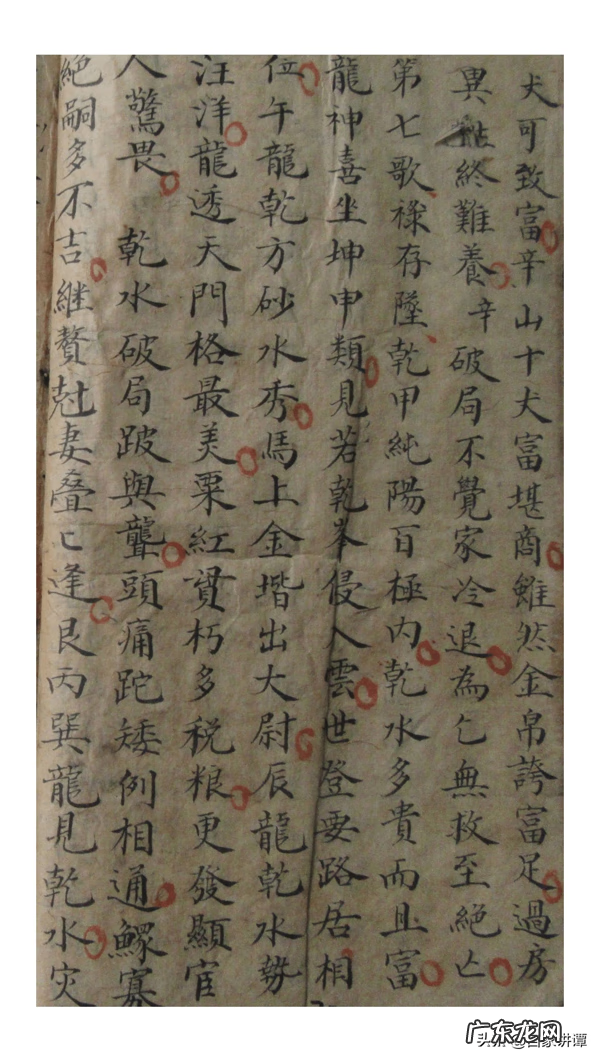 犬可致富辛山十犬富堪商雖然金帛誇富足過房
異終難養辛破局不覺家冷退為乞無救至絕亡
第七歌祿存墜乾甲純陽百極内乾水多貴而且富
龍神喜坐坤申類見若乾峯侵入雲世登要路居相
位午龍乾方砂水秀馬上金堦出大尉辰龍乾水勢
汪洋龍透天門格最美粟紅貫朽多税粮更發顯宦
人驚畏 乾水破局跛與聾頭痛跎矮例相通鰥寡
絕嗣多不吉継贅尅妻叠〻逢艮丙巽龍見乾水灾
头条 @百家讲谭
广东龙网